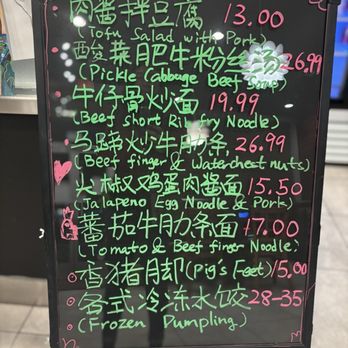 肉酱拌豆腐 13.00
(Tofu Salad with Pork)
酸菜肥牛粉丝汤 26.99
(Pickle Cabbage Beef Soup)
牛仔骨炒面 19.99
(Beef Short Rib fry Noodle)
马蹄炒牛肋条 26.99
(Beef finger & Waterchest nuts)
尖椒鸡蛋肉酱面 15.50
(Jalapeno Egg Noodle & Pork)
蕃茄牛肋条面 17.00
(Tomato & Beef finger Noodle)
香猪脚 (Pig's Feet) 15.00
各式冷冻水饺 28-35
(Frozen Dumpling)